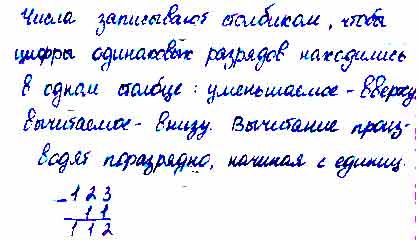 Числа записывают столбиком, чтобы
цифры одинаковых разрядов находились
в одном столбце: уменьшаемое - вверху,
вычитаемое - внизу. Вычитание произ-
водят поразрядно, начиная с единиц.
- 123
11
112